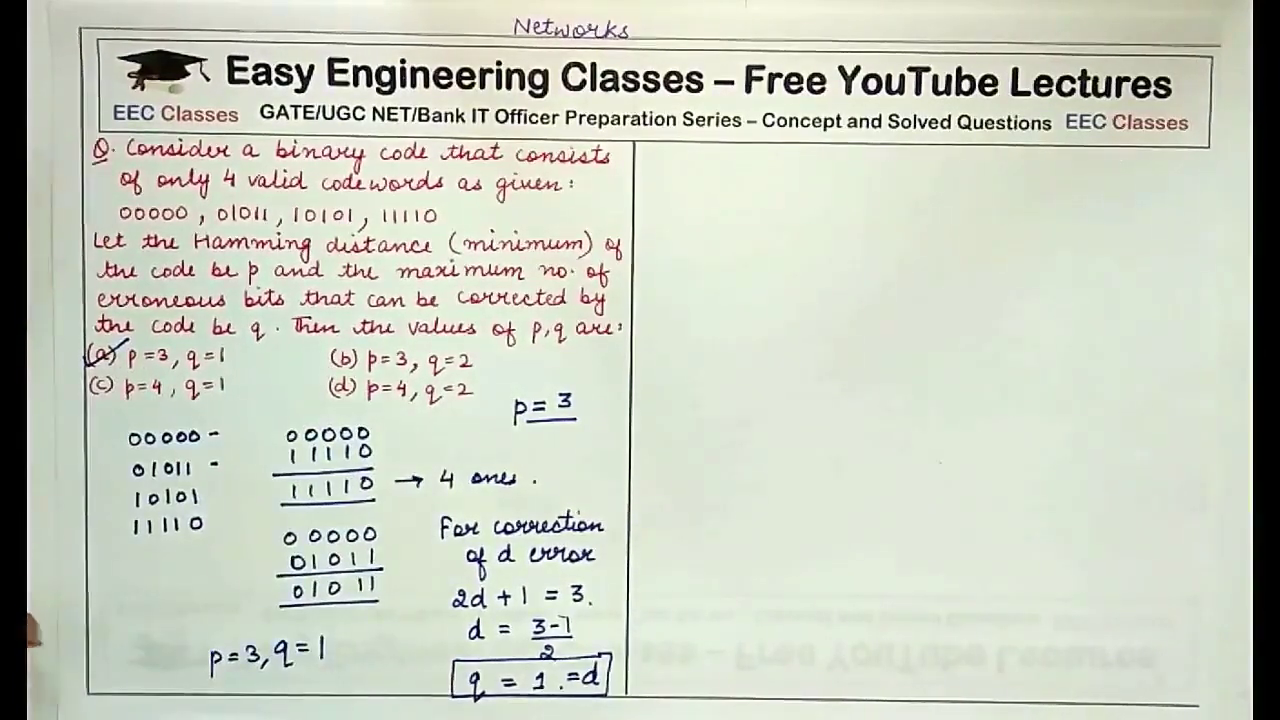 Networks
Easy Engineering Classes – Free YouTube Lectures
EEC Classes GATE/UGC NET/Bank IT Officer Preparation Series – Concept and Solved Questions EEC Classes
Q. Consider a binary code that consists
of only 4 valid codewords as given:
00000, 01011, 10101, 11110
Let the Hamming distance (minimum) of
the code be p and the maximum no. of
erroneous bits that can be corrected by
the code be q. Then the values of p,q are:
(a) p=3, q=1 (b) p=3, q=2
(c) p=4, q=1 (d) p=4, q=2
p = 3
00000 -
01011 -
10101
11110
00000
11110
11110 → 4 ones.
00000
01011
01011
For correction
of d error
2d + 1 = 3.
d = 3-1
2
q = 1. =d
p=3, q=1